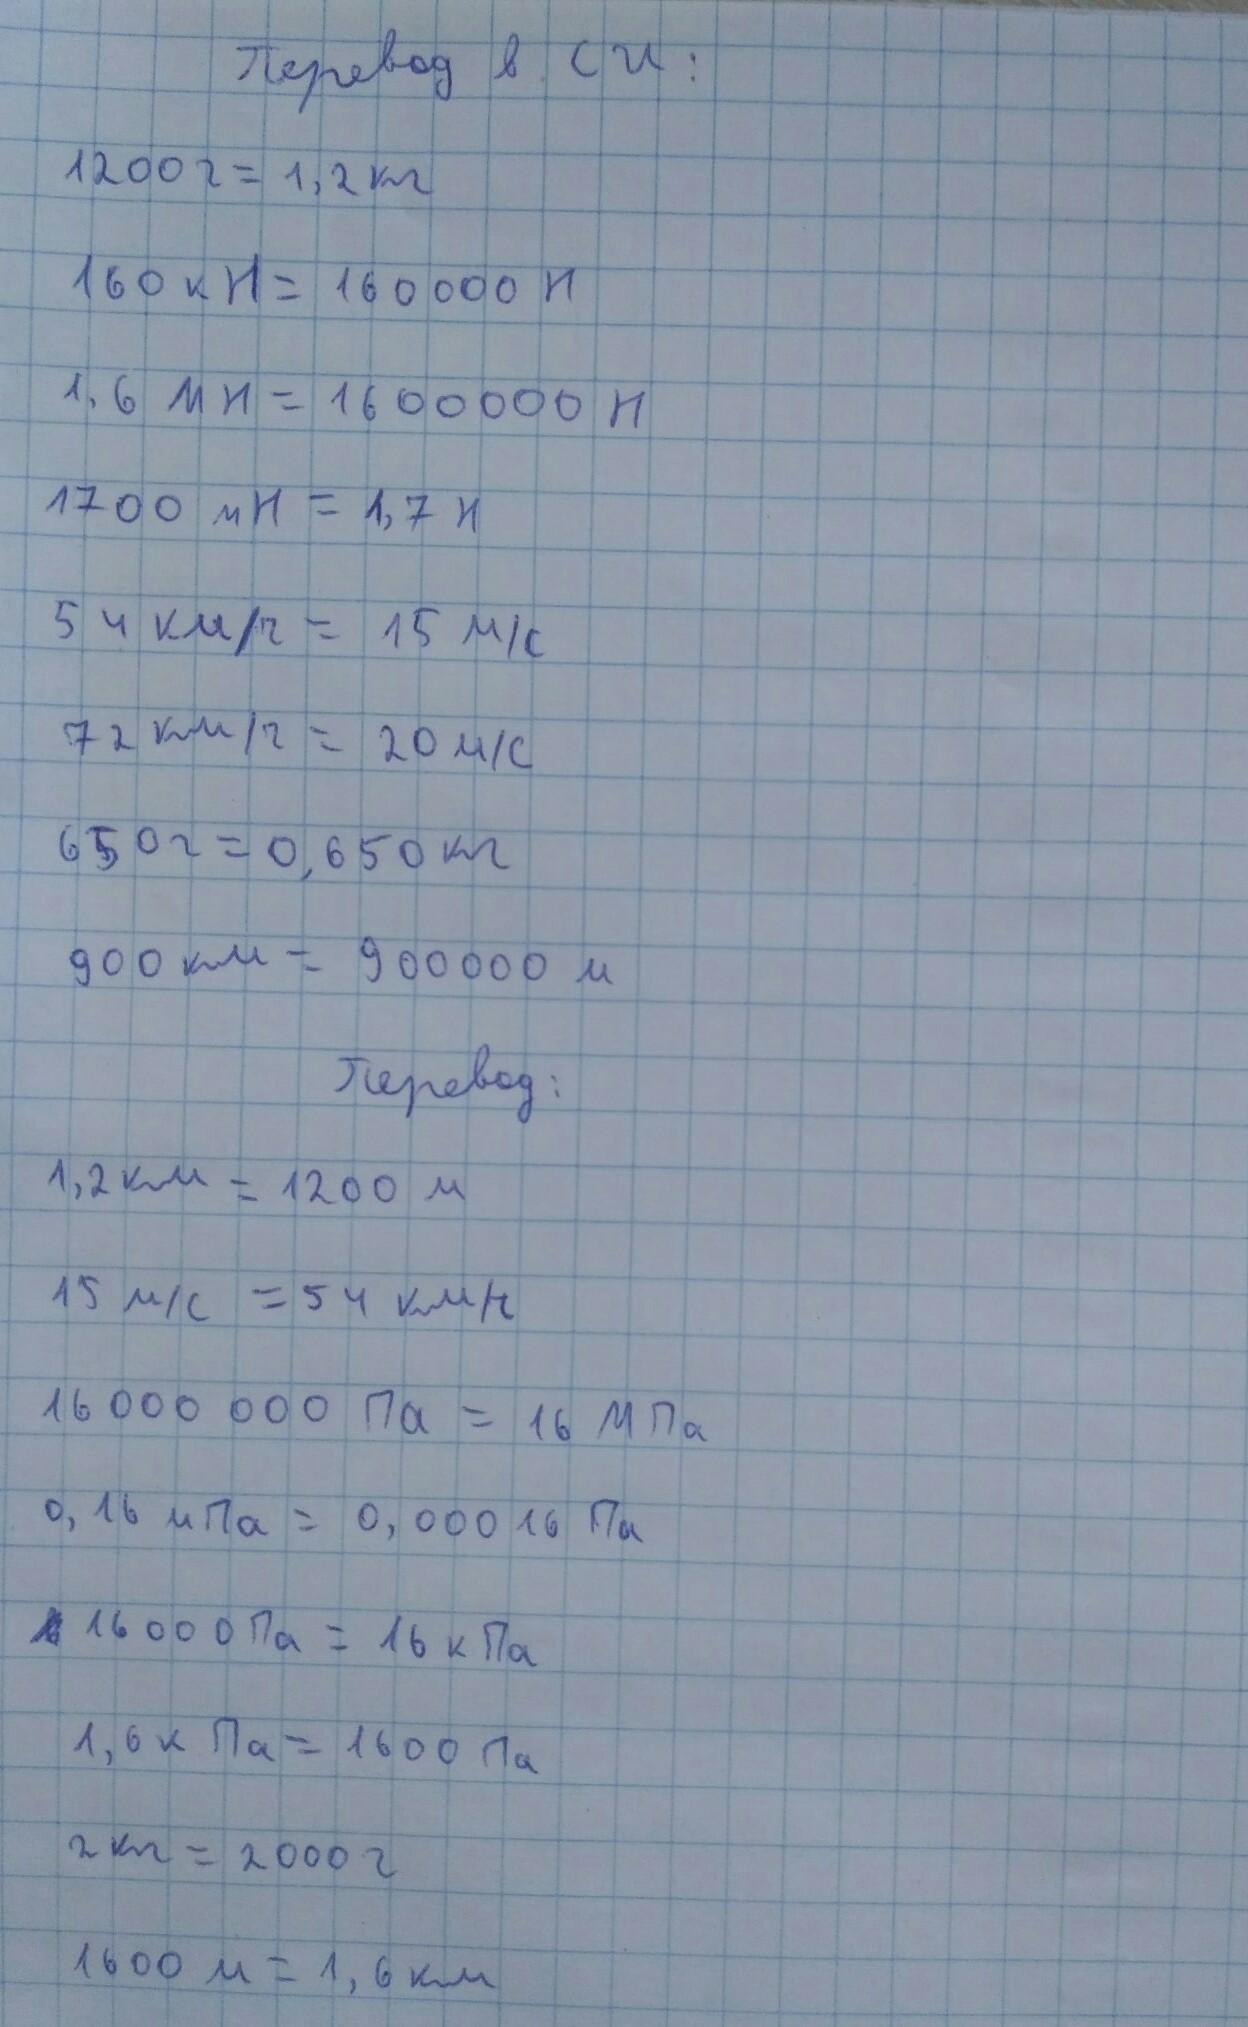 Перевод в СИ:
1200 г = 1,2 кг
160 кН = 160000 Н
1.6 МН = 1600000 Н
1700 мН = 1,7 Н
54 км/ч = 15 м/с
72 км/ч = 20 м/с
650 г = 0,650 кг
900 км = 900000 м
Перевод:
1,2 км = 1200 м
15 м/с = 54 км/ч
16000 000 Па = 16 МПа
0,16 мПа = 0,00016 Па
16000 Па = 16 кПа
1,6 к Па = 1600 Па
2 кг = 2000 г
1600 м = 1,6 км